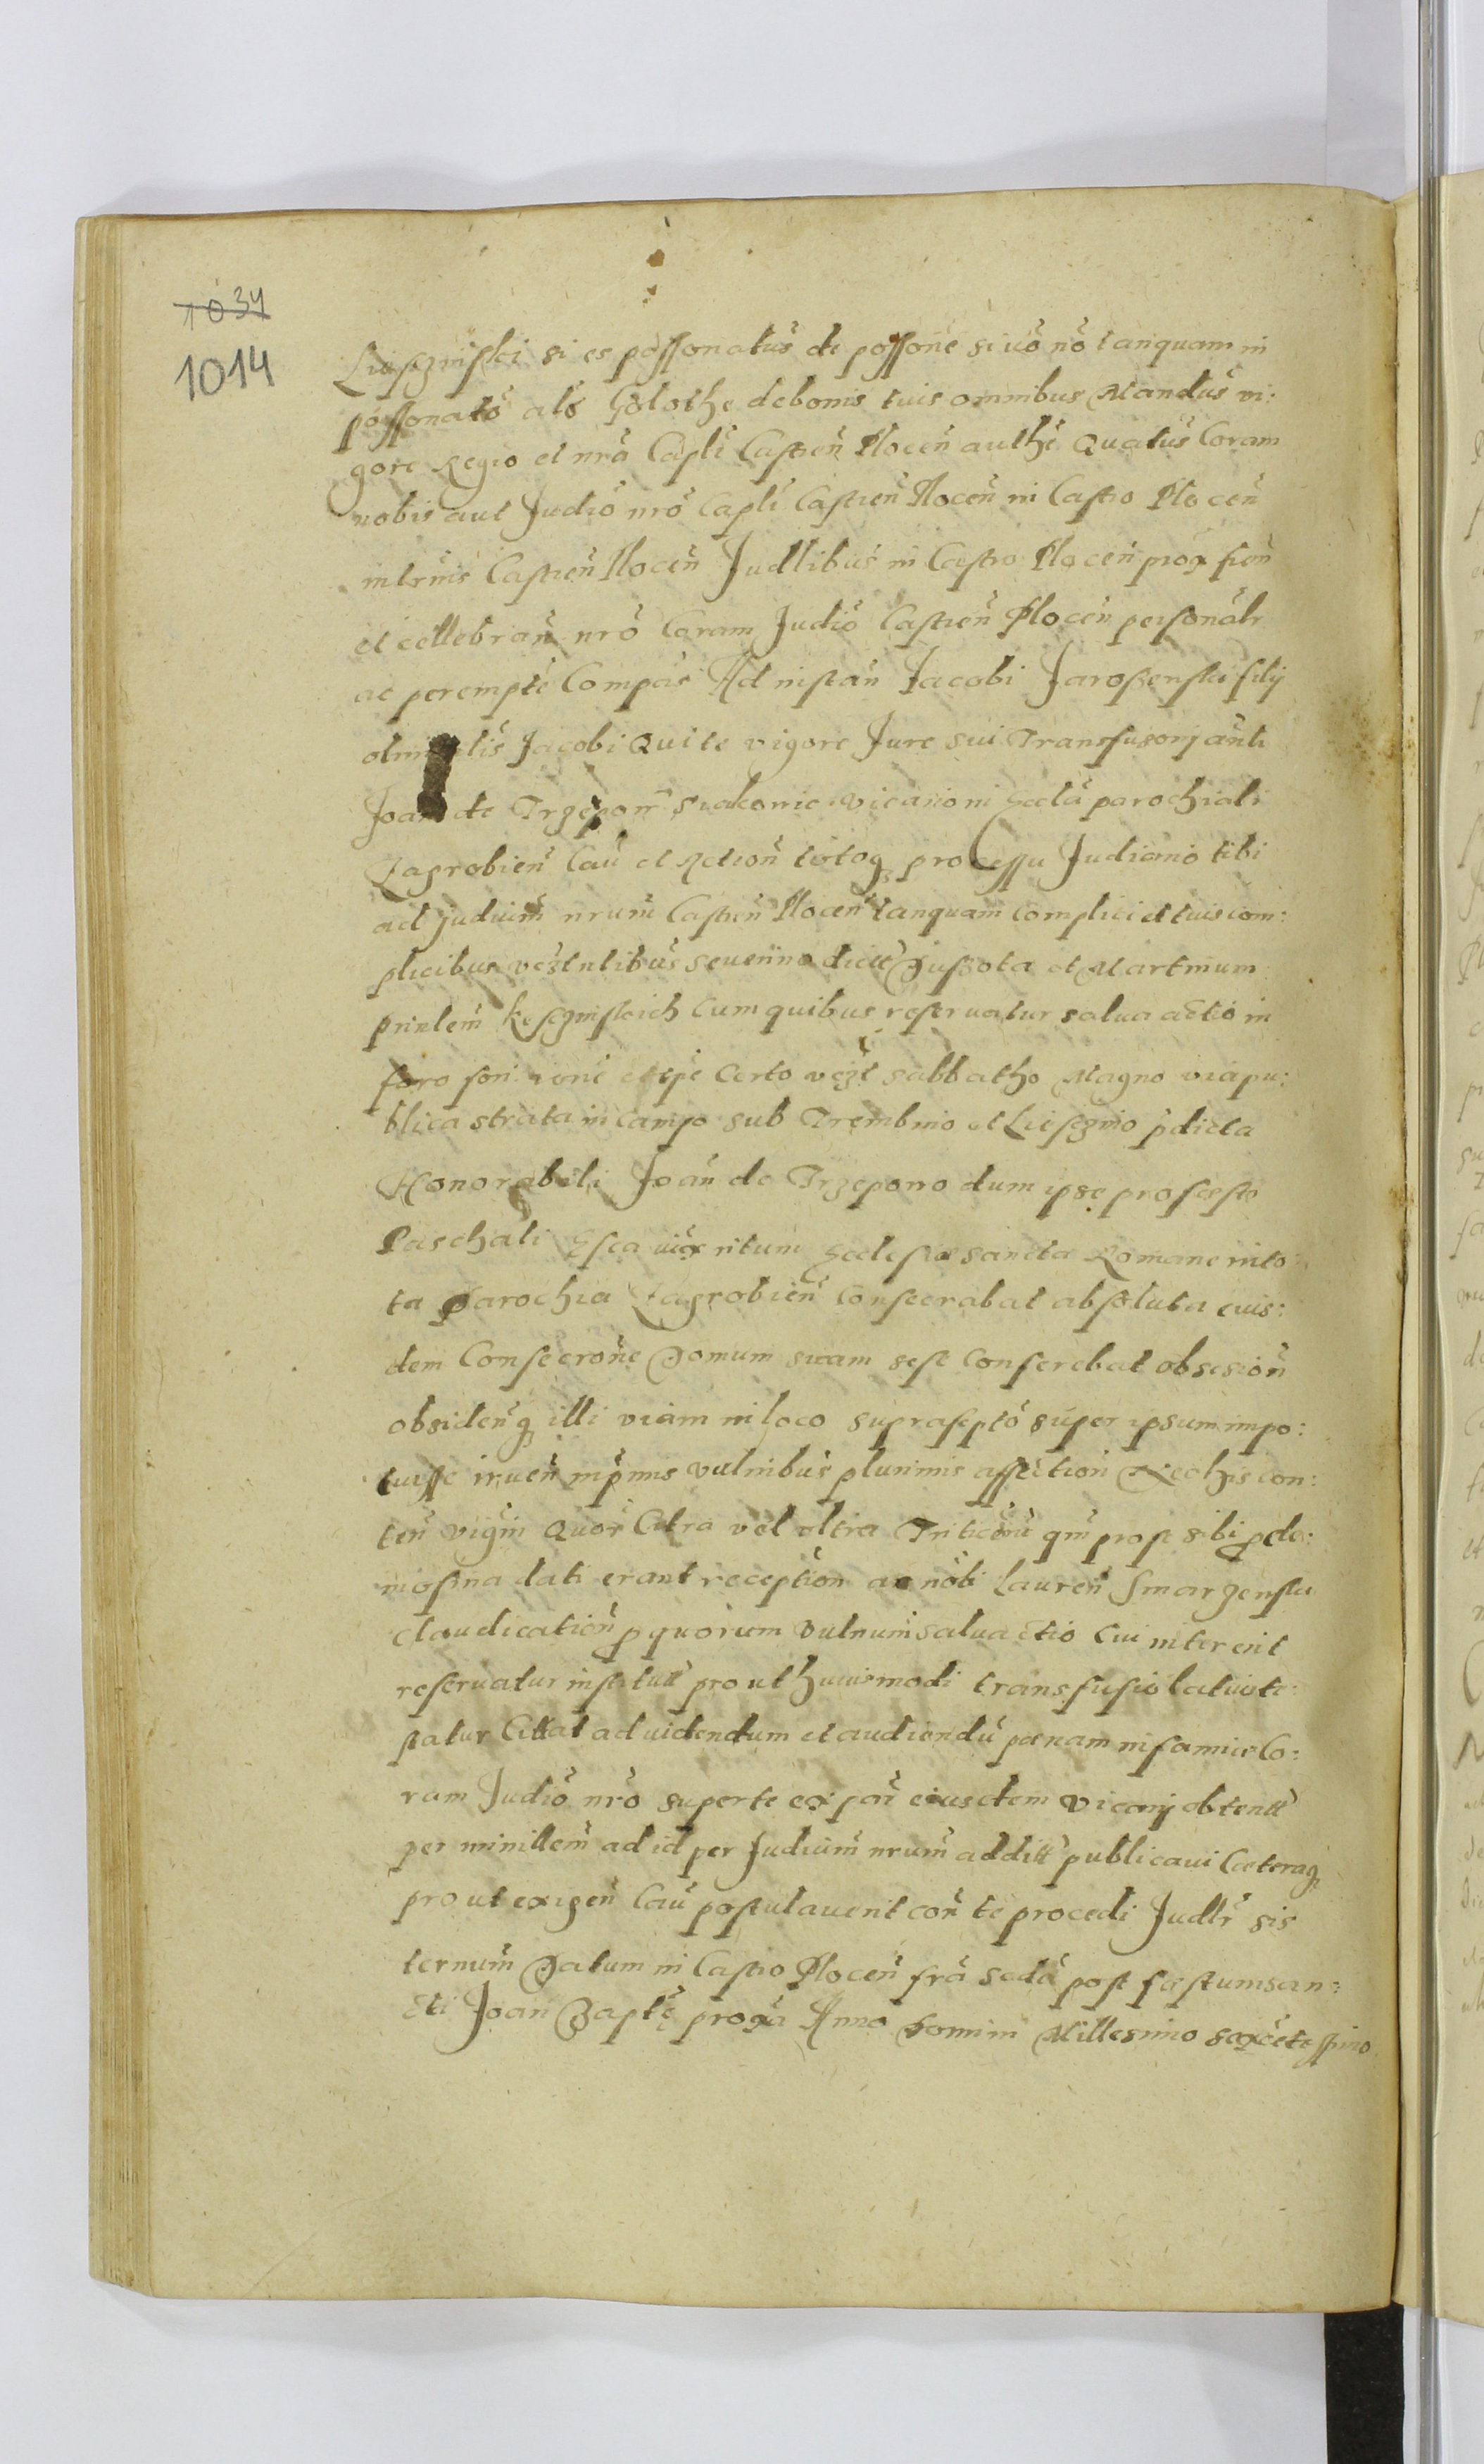 1034
1014
Lieseznisski si es possonatus de possone si vo no tanquam in
possonato als Golothe de bonis tuis omnibus Mandus vi:
gore Regio et nra Capli Castren Plocen authe Quatus Coram
nobis aut Judio nro Capli Castren Plocen in Castro Plocen
in trnis Castren Plocen Judlibus in Castro Plocen prox fien
et cellebran nro Coram Judio Castren Plocen personalr
ac perempte Compas Ad instan Jacobi filij
olim Jacobi Qui te vigore Jure sui Transfusorij anti
Joan de Trzepon vicarioni Eccla parochiali
Zagrobien Cau et Action totoq processu Judiario tibi
ad judium nrum Castren Plocen tanquam complici et tuis com:
plicibus vezt Severino dictt et Martinum
cum quibus reservatur salva actio in
foro fori et tpe Certo vezt sabbatho Magno via pu:
blica strata in campo sub Trembino et Liesezno pdicta
Honorabili Joan de Trzepono dum ipse pro festo
Paschali Esca ritum Ecclesia sancta Romane in to
ta parochia Zagrobien Consecrabat absoluta eius:
dem Consecrone Domum suam sese Conferebat obsesion
obsidenq illi viam in loco suprascpto super ipsum impo:
tuisse irruen inpmis vulnibus plurimis affection con:
ten vigin Quor Citra vel ultra Triticem qm prose sibi p ele:
mosina dati erant reception ac nobi Lauren
claudication p quorum Vulnum salva actio Cui intererit
reservatur instatutt prout huiusmodi transfusio latius te:
statur Cittat ad videndum et audiendu pœnam infamiæ Co:
ram Judio nro super te ex par eiusdem vicarij obtentt
per minillem ad id per Judium nrum additt publicaui Cæteraq
prout exigen Cau postulaverit con te procedi Judlr sis
ternum Datum in Castro Plocen fra secda post festum san:
cti Joan Baptę proxa Anno Domini Millesimo sexcetessimo